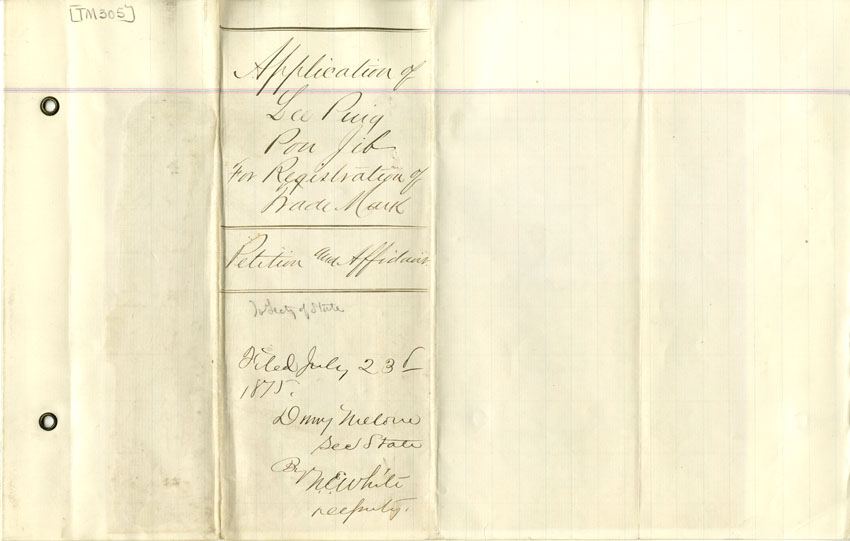 [TM305]
Application of
Lee Ping
Pon Jib
For Registration of
Trade Mark
Petition and Affidavit
To Secty of State
Filed July 23d
1875.
Drury Melone
Sec State
By N.E. White
Deputy.